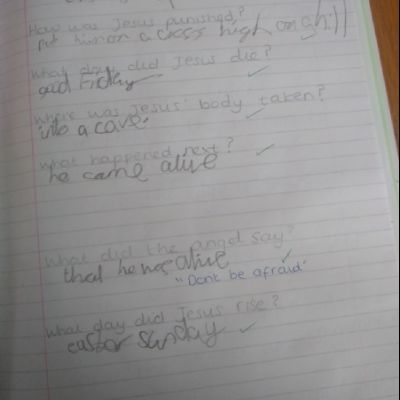 How was Jesus punished?
Put him on a cross high on a hill
What day did Jesus die?
good Friday
Where was Jesus' body taken?
into a cave.
What happened next?
he came alive
What did the angel say?
that he was alive
"Dont be afraid"
What day did Jesus rise?
easter sunday